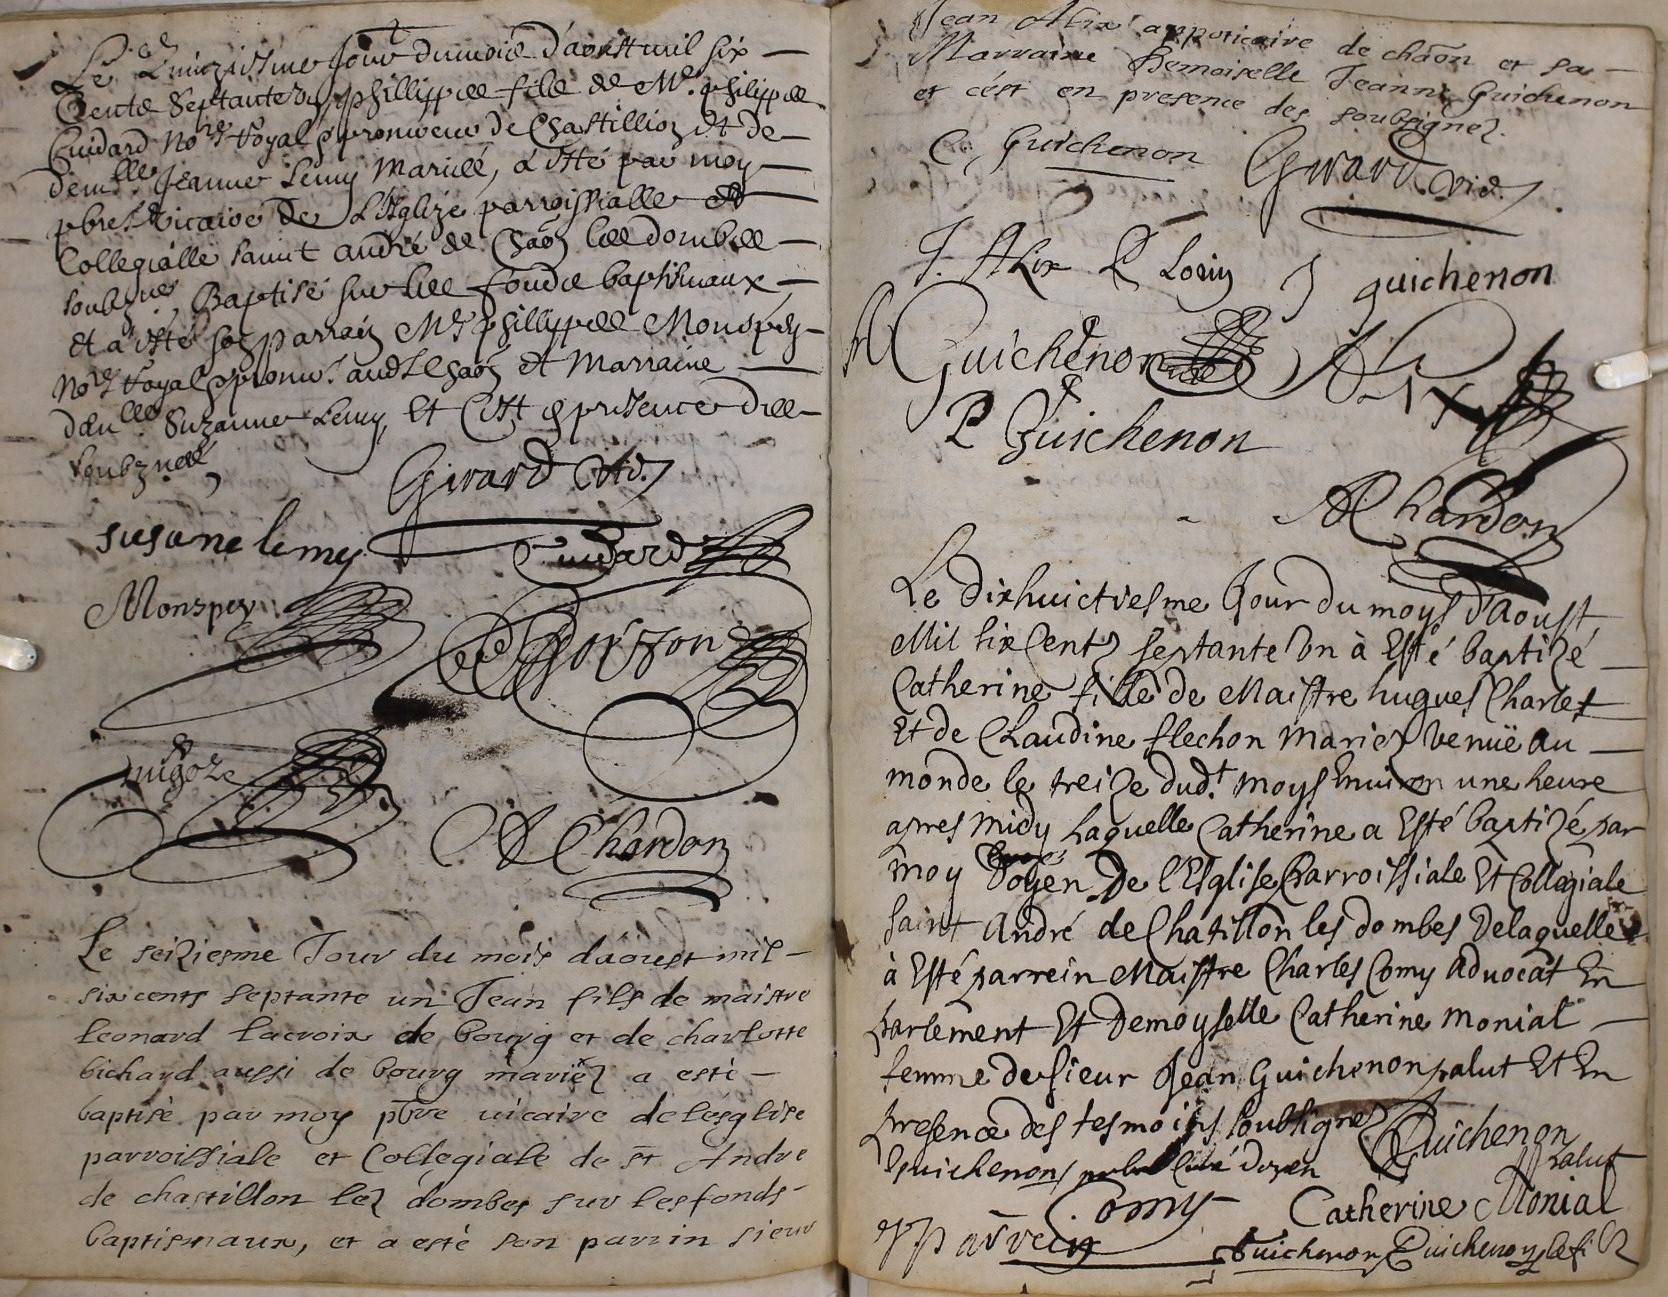 Le quinziesme Jour du mois d'aoust mil six
Cents Septante un phillippes fille de Me. philippes
Cuidard Nore Royal & procureur de Chastillion et de
demlle Jeanne Lemy Mariés, a esté par moy
pbre. vicaire de L'Eglize parroissialle et
Collegialle saint andré de Chaon les dombes
soubznes, Baptisé sur les fonds baptismaux
et a esté son parrain Mre phillippes Monspey
Nore Royal & procur. aud. Chaon et Marraine
damlle Suzanne Lemy, et C'est en presence des
soubznes,
Girard vic.
susane lemy Cuidard
Monspey
Chardon
Le seiziesme Jour du mois d'aoust mil
six cents septante un Jean fils de maistre
Leonard Lacroix de bourg et de charlotte
bichard aussi de bourg mariéz a esté
baptisé par moy pbre vicaire de l'ésglise
parroissiale et Collegiale de st Andre
de chastillon lez dombes sur les fonds
baptismaux, et a esté son parrin sieur
Jean Alix appoticaire de chaon et sa
Marraine Demoiselle Jeanne Guichenon
et c'est en presence des soubsignez.
C. Guichenon Girard vic.
J. Alix P Loriy J guichenon
Guichenon Alix
P Guichenon
A Chardon
Le dixhuictiesme Jour du moys d'Aoust
Mil six Centz septante Un à Esté baptizé
Catherine fille de Maistre hugues Charlet
Et de Claudine flechon Mariez venuë Au
monde le treize dudt. moys Enuiron une heure
apres midy Laquelle Catherine a Esté baptizé par
moy Doyen De l'Esglise Parroissiale Et Collegiale
saint André de Chatillon les dombes Delaquelle
à Esté parrein Maistre Charles Comy Advocat En
parlement Et Demoyselle Catherine Monial
femme de sieur Jean Guichenon palut Et En
presence des tesmoins soubsignez Guichenon
Guichenon curé doyen palut
Comy Catherine Monial
parrein Guichenon Guichenon le fils